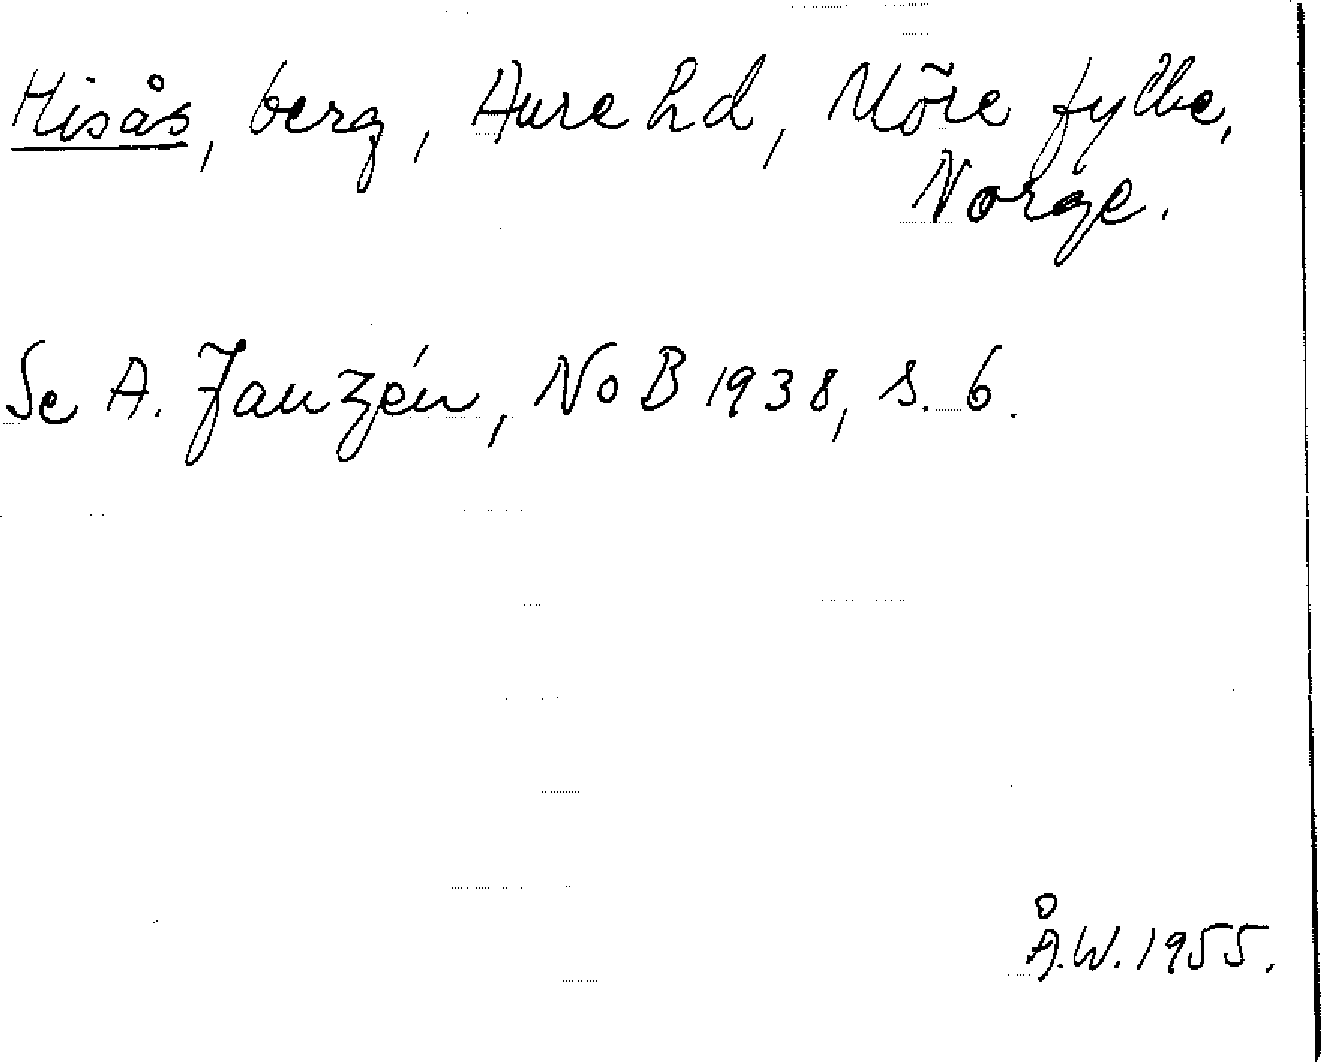 Hisås, berg, Aure hd, Möre fylke,
Norge.
Se A. Janzén, NoB 1938, s. 6.
Å.W. 1955.